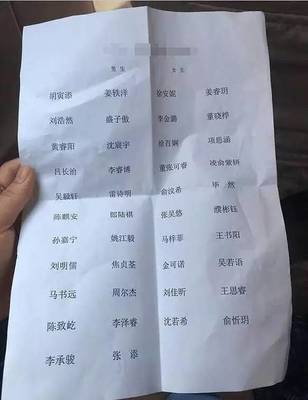 男生 女生
胡寅添 姜轶洋 徐安妮 姜睿玥
刘浩然 盛子傲 李金璐 董晓桦
黄睿阳 沈宸宇 徐百娴 项思涵
吕长治 李睿博 董张可睿 凌俞紫妍
吴毓轩 雷诗明 俞汶希 毕然
陈麒安 郎陆祺 张昊悠 濮彬钰
孙嘉宁 姚江毅 马梓菲 王书阳
刘明儒 焦贞荃 金可诺 吴若语
马书远 周尔杰 刘佳昕 王思睿
陈致屹 李泽睿 沈若希 俞忻玥
李承骏 张添